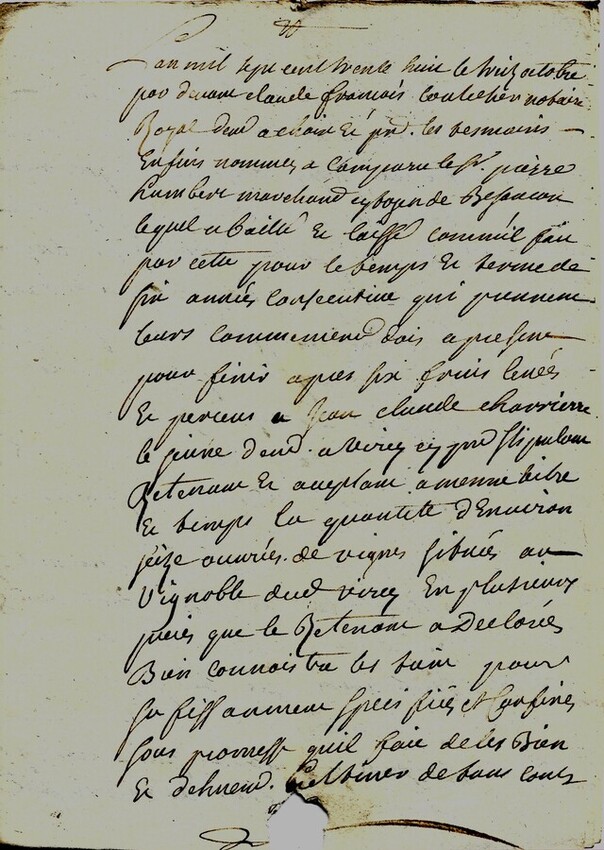 Lan mil sept cent trente huit le huit octobre
par devant claude françois notaire
Royal demt a et pnt. les tesmoins
Enfins nommez a comparu le sr. pierre
humbert marchand cytoyen de Besancon
lequel a baillé et laissé comme il fait
par cette pour le temps et terme de
six années consecutive qui prennent
leurs commencement dois a present
pour finir apres six fruits levées
et perceus a Jean claude charriere
le jeune demt. a virey cy pnt stipulant
Retenant et acceptant a mesme titre
et temps la quantité d'Environ
seize ouvrées de vignes situées au
vignoble dud virey En plusieurs
pieces que le Retenant a declarés
Bien connoistre les tenir pour
suffisamment speciffiés et confinés
sous promesse qu'il fait de les Bien
et dehument. cultiver de tous